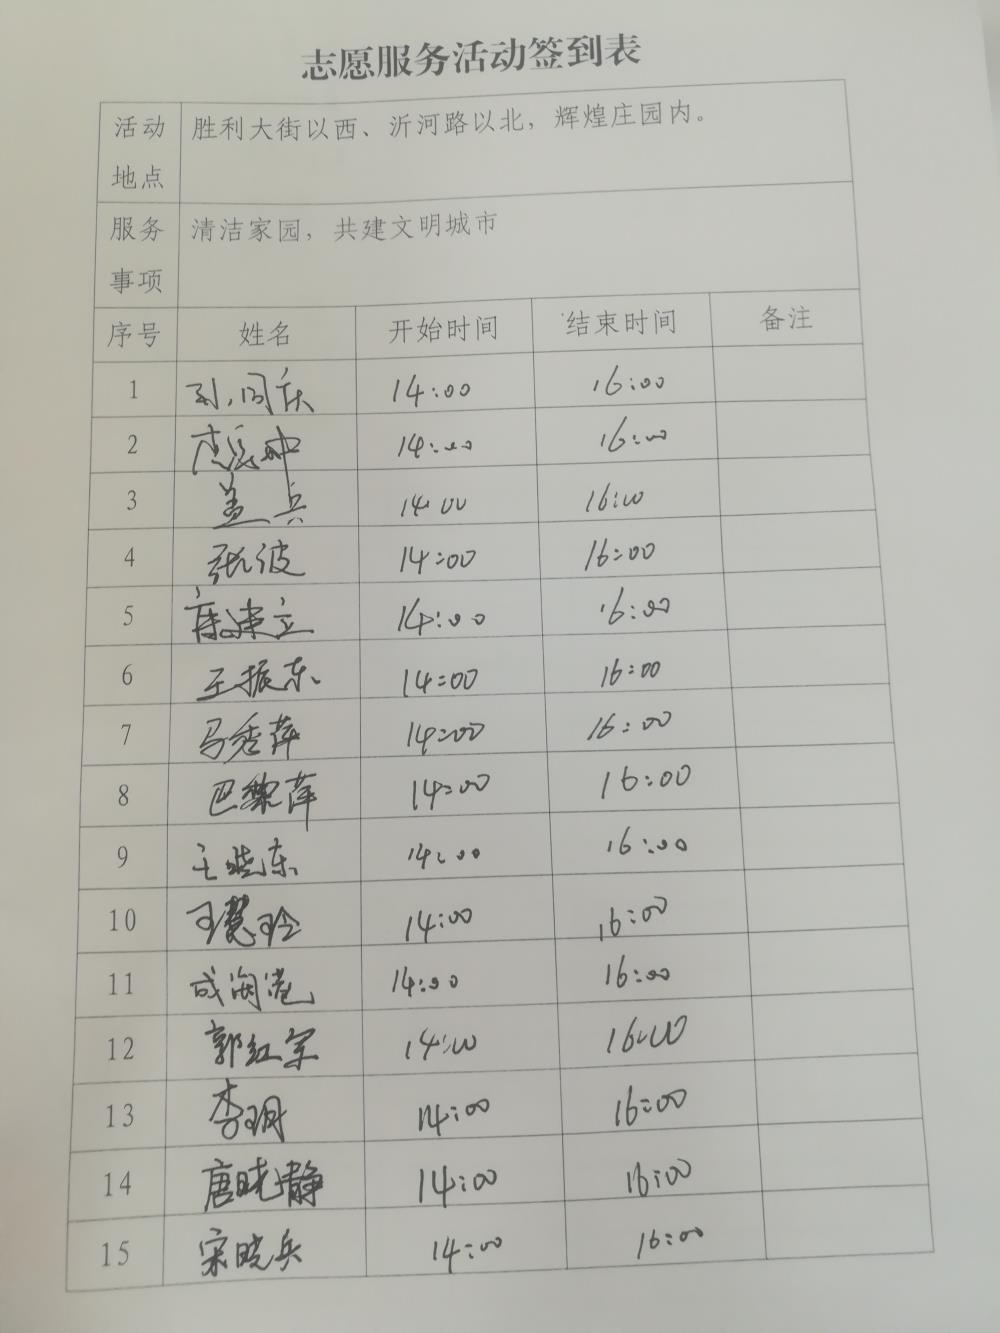 志愿服务活动签到表
活动地点 胜利大街以西、沂河路以北，辉煌庄园内。
服务事项 清洁家园，共建文明城市
序号 姓名 开始时间 结束时间 备注
1 14:00 16:00
2 14:00 16:00
3 盖兵 14:00 16:00
4 张波 14:00 16:00
5 建立 14:00 16:00
6 王振东 14:00 16:00
7 马秀萍 14:00 16:00
8 巴黎萍 14:00 16:00
9 王晓东 14:00 16:00
10 王慧玲 14:00 16:00
11 成海港 14:00 16:00
12 郭红军 14:00 16:00
13 李玥 14:00 16:00
14 唐晓静 14:00 16:00
15 宋晓兵 14:00 16:00